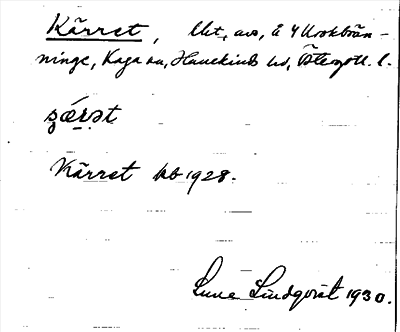 Kärret, lht, avs, å 4 Krokbrän-
ninge, Kaga sn, Hanekinds hd, Östergötl. l.
Kärret kb 1928.
Sune Lindqvist 1930.